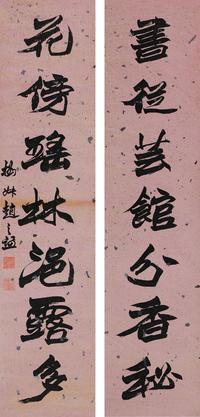 書從芸館分香秘
花傍瑤林浥露多
撝叔趙之謙